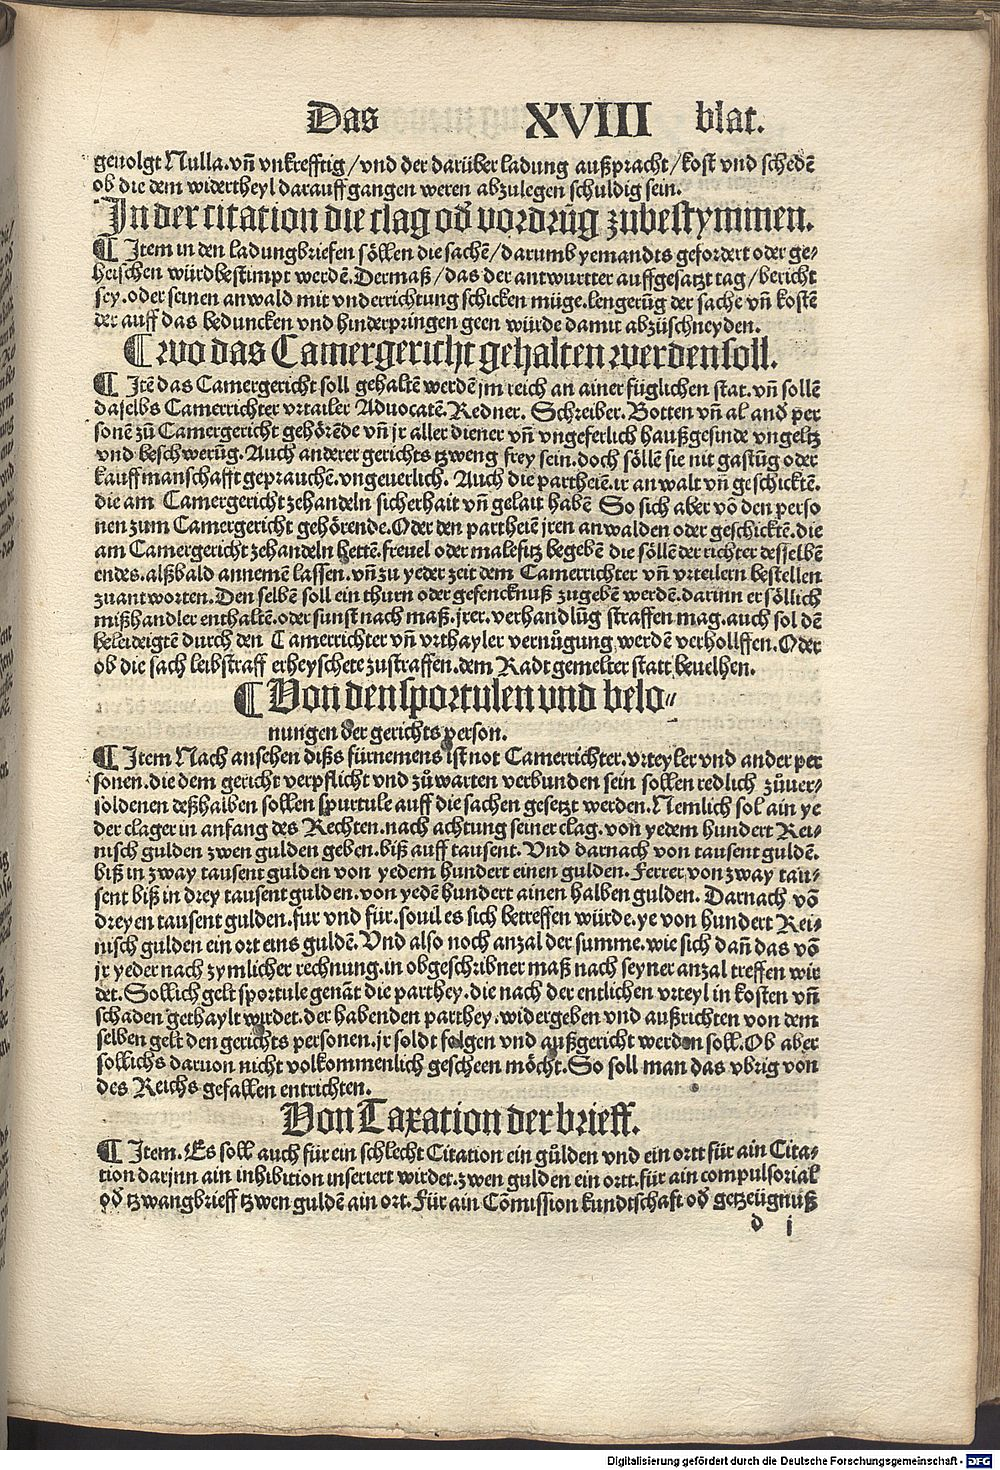 Das XVIII blat.
geuolgt Nulla. vñ vnkrefftig / vnd der darüber ladung außpracht / kost vnd schedē
ob die dem widertheyl darauff gangen weren abzulegen schuldig sein.
In der citation die clag od̄ vordrūg zubestymmen.
¶ Item in den ladungbriefen söllen die sachē / darumb yemandts gefordert oder ge-
heischen würd bestimpt werdē. Dermaß / das der antwurtter auff gesatzt tag / bericht
sey. oder seinen anwald mit vnderrichtung schicken müge. lengerūg der sache vñ kostē
der auff das beduncken vnd hinderpringen geen würde damit abzüschneyden.
¶ wo das Camergericht gehalten werden soll.
¶ Itē das Camergericht soll gehaltē werdē jm reich an ainer füglichen stat. vñ sollē
daselbs Camerrichter vrtailer Aduocatē. Redner. Schreiber. Botten vñ al and̄ per
sonē zū Camergericht gehörēde vñ jr aller diener vñ vngeferlich haußgesinde vngeltz
vnd beschwerūg. Auch anderer gerichts tzweng frey sein. doch söllē sie nit gastūg oder
kauffmanschafft geprauchē. vngeuerlich. Auch die partheiē. ir anwalt vñ geschicktē.
die am Camergericht zehandeln sicherhait vñ gelait habē So sich aber vō den perso
nen zum Camergericht gehörende. Oder den partheiē jren anwalden oder geschicktē. die
am Camergericht zehandeln hettē. freuel oder malefitz begebē die söllē der richter desselbē
endes. alßbald annemē lassen. vñ zu yeder zeit dem Camerrichter vñ vrteilern bestellen
zuantworten. Den selbē soll ein thurn oder gefencknuß zugebē werdē. darinn er söllich
mißhandler enthaltē. oder sunst nach maß. jrer. verhandlūg straffen mag. auch sol dē
beleideigtē durch den Camerrichter vñ vrthayler vernůgung werdē verholffen. Oder
ob die sach leibstraff erheyschete zustraffen. dem Radt gemelter statt beuelhen.
¶ Von den sportulen vnd belo-
nungen der gerichts person.
¶ Item Nach ansehen dißs fürnemens ist not Camerrichter. vrteyler vnd ander per
sonen. die dem gericht verpflicht vnd zůwarten verbunden sein sollen redlich zůuer-
soldenen deßhalben sollen spurtule auff die sachen gesetzt werden. Nemlich sol ain ye
der clager in anfang des Rechten. nach achtung seiner clag. von yedem hundert Rei-
nisch gulden zwen gulden geben. biß auff tausent. Vnd darnach von tausent guldē.
biß in zway tausent gulden von yedem hundert einen gulden. Ferrer von zway tau-
sent biß in drey tausent gulden. von yedē hundert ainen halben gulden. Darnach vō
dreyen tausent gulden. fur vnd für. souil es sich betreffen würde. ye von hundert Rei-
nisch gulden ein ort eins guldē. Vnd also noch anzal der summe. wie sich dañ das vō
jr yeder nach zymlicher rechnung. in obgeschribner maß nach seyner anzal treffen wir
det. Sollich gelt sportule genāt die parthey. die nach der entlichen vrteyl in kosten vñ
schaden gethaylt wirdet. der habenden parthey. widergeben vnd außrichten von dem
selben gelt den gerichts personen. jr soldt folgen vnd außgericht werden soll. Ob aber
sollichs daruon nicht volkommenlich gescheen möcht. So soll man das vbrig von
des Reichs gefallen entrichten.
Von Taxation der brieff.
¶ Item. Es soll auch für ein schlecht Citation ein gülden vnd ein ortt für ain Cita-
tion darjnn ain inhibition inseriert wirdet. zwen gulden ein ortt. für ain compulsorial
od̄ tzwangbrieff tzwen guldē ain ort. Für ain Cōmission kundtschaft od̄ getzeügnüß
d j
Digitalisierung gefördert durch die Deutsche Forschungsgemeinschaft - DFG